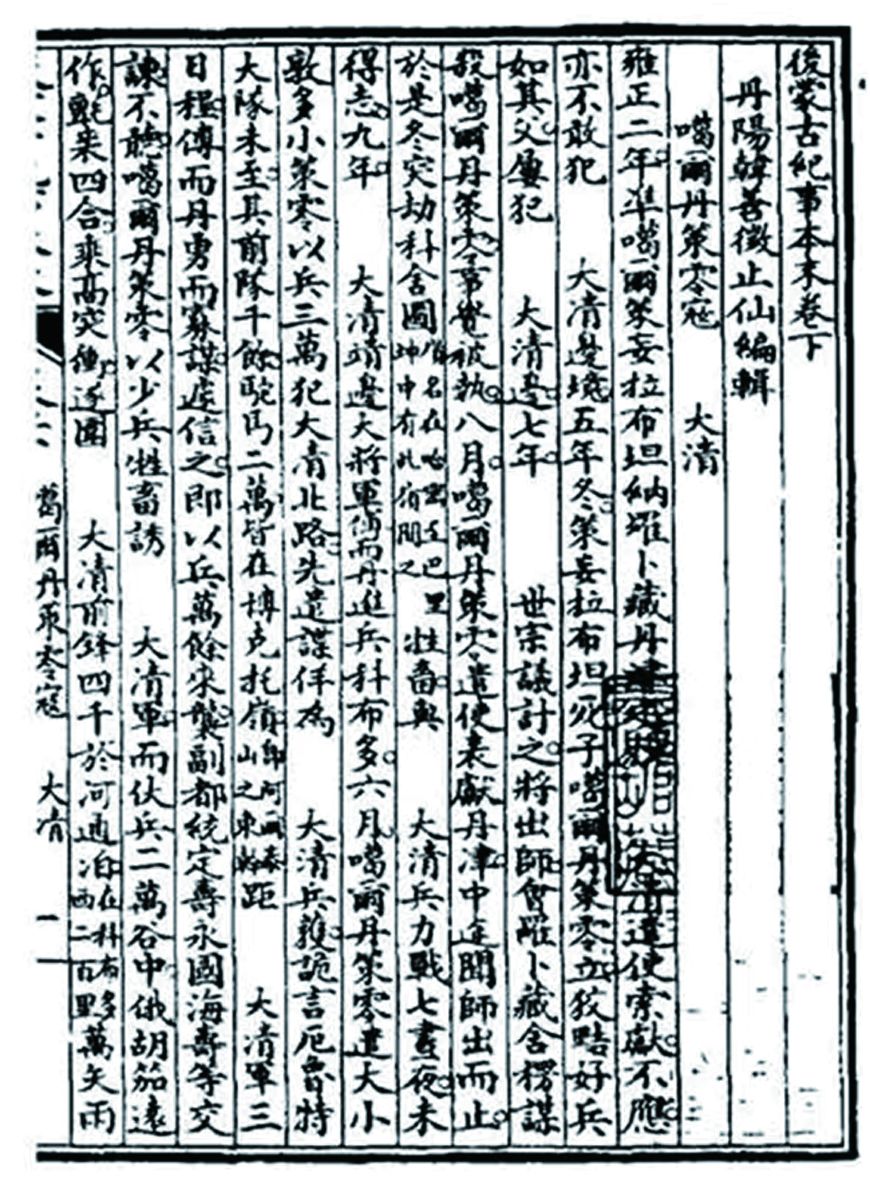 後蒙古紀事本末卷下
丹陽韓善徵止仙編輯
噶爾丹策零寇 大清
雍正二年準噶爾策妄拉布坦納羅卜藏丹津 清遣使索獻不應
亦不敢犯 大清邊境五年冬策妄拉布坦死子噶爾丹策零立狡黠好兵
如其父屢犯 大清邊七年 世宗議討之將出師會羅卜藏舍楞謀
殺噶爾丹策零事覺被執八月噶爾丹策零遣使表獻丹津中途聞師出而止
於是冬突劫科舍圖 牲畜與 大清兵力戰七晝夜未
得志九年 大清靖邊大將軍傅而丹進兵科布多六月噶爾丹策零遣大小
敦多小策零以兵三萬犯大清北路先遣諜佯為 大清兵獲詭言厄魯特
大隊未至其前隊千餘駝馬二萬皆在博克托嶺 山之東 距 大清軍三
日程傅而丹勇而寡謀遽信之即以兵萬餘宋襲副都統定壽永國海壽等交
諫不聽噶爾丹策零以少兵牲畜誘 大清軍而伏兵二萬谷中俄胡笳遠
作氈裘四合乘高突衝遂圍 大清前鋒四千於河通泊在科布多西二百里萬矢雨
葛爾丹策零寇 大清 一